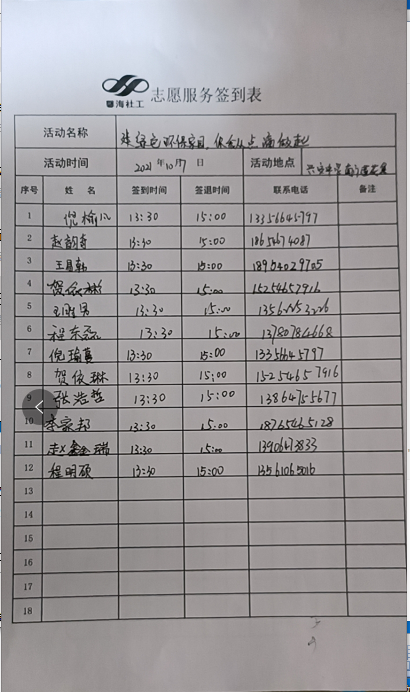 粤海社工 志愿服务签到表
活动名称 绿色环保家园,从点滴做起
活动时间 2021年10月7日 活动地点
序号 姓名 签到时间 签退时间 联系电话 备注
1 倪榆 13:30 15:00 13356645797
2 赵韵 13:30 15:00
3 王昌韩 13:30 15:00 18954029705
4 贺依琳 13:30 15:00 15254657916
5 王 男 13:30 15:00
6 程东 13:30 15:00 13780784668
7 倪瑜 13:30 15:00 13356645797
8 贺依琳 13:30 15:00 15254657916
9 张浩哲 13:30 15:00 13864755677
10 李家邦 13:30 15:00 18765465128
11 赵鑫瑞 13:30 15:00
12 程明硕 13:30 15:00 13561065016
13
14
15
16
17
18